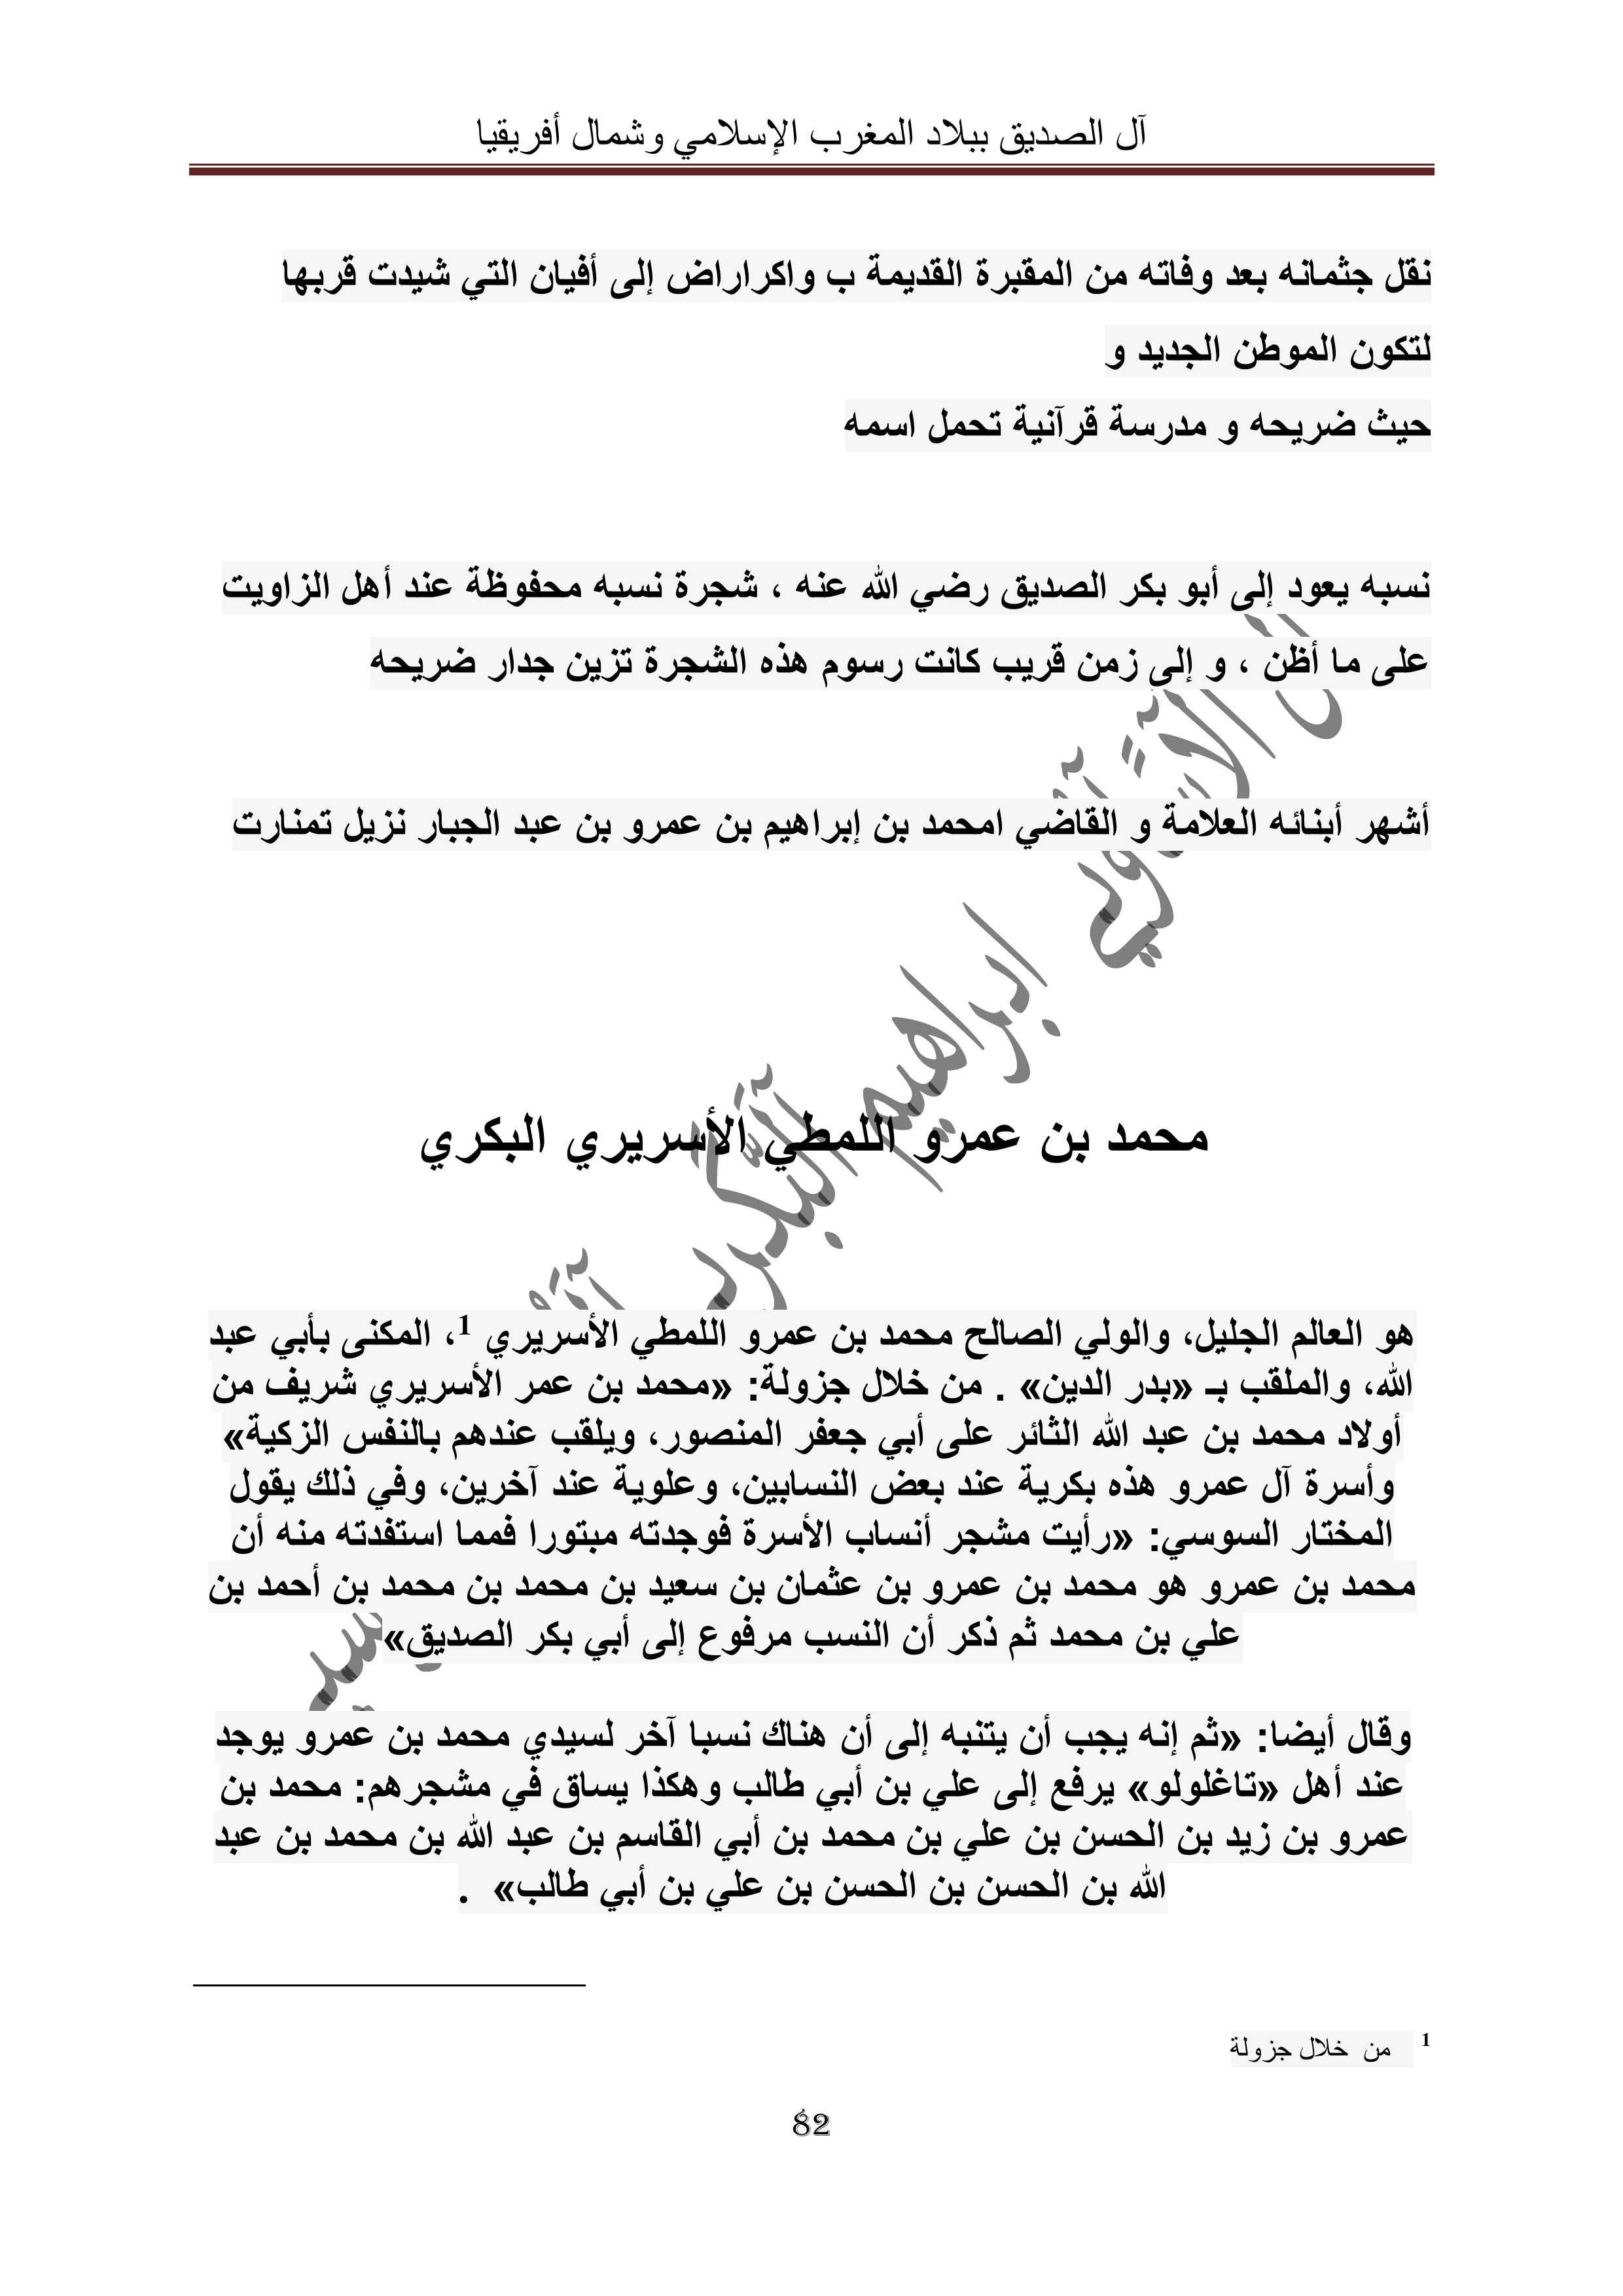 آل الصديق ببلاد المغرب الإسلامي وشمال أفريقيا
نقل جثمانه بعد وفاته من المقبرة القديمة ب واكراراض إلى أفيان التي شيدت قربها
لتكون الموطن الجديد و
حيث ضريحه و مدرسة قرآنية تحمل اسمه
نسبه يعود إلى أبو بكر الصديق رضي الله عنه ، شجرة نسبه محفوظة عند أهل الزاويت
على ما أظن ، و إلى زمن قريب كانت رسوم هذه الشجرة تزين جدار ضريحه
أشهر أبنائه العلامة و القاضي امحمد بن إبراهيم بن عمرو بن عبد الجبار نزيل تمنارت
محمد بن عمرو اللمطي الأسريري البكري
هو العالم الجليل، والولي الصالح محمد بن عمرو اللمطي الأسريري 1، المكنى بأبي عبد
الله، والملقب بـ «بدر الدين» . من خلال جزولة: «محمد بن عمر الأسريري شريف من
أولاد محمد بن عبد الله الثائر على أبي جعفر المنصور، ويلقب عندهم بالنفس الزكية»
وأسرة آل عمرو هذه بكرية عند بعض النسابين، وعلوية عند آخرين، وفي ذلك يقول
المختار السوسي: «رأيت مشجر أنساب الأسرة فوجدته مبتورا فمما استفدته منه أن
محمد بن عمرو هو محمد بن عمرو بن عثمان بن سعيد بن محمد بن محمد بن أحمد بن
علي بن محمد ثم ذكر أن النسب مرفوع إلى أبي بكر الصديق»
وقال أيضا: «ثم إنه يجب أن يتنبه إلى أن هناك نسبا آخر لسيدي محمد بن عمرو يوجد
عند أهل «تاغلولو» يرفع إلى علي بن أبي طالب وهكذا يساق في مشجرهم: محمد بن
عمرو بن زيد بن الحسن بن علي بن محمد بن أبي القاسم بن عبد الله بن محمد بن عبد
الله بن الحسن بن الحسن بن علي بن أبي طالب» .
1 من خلال جزولة
82
ابراهيم